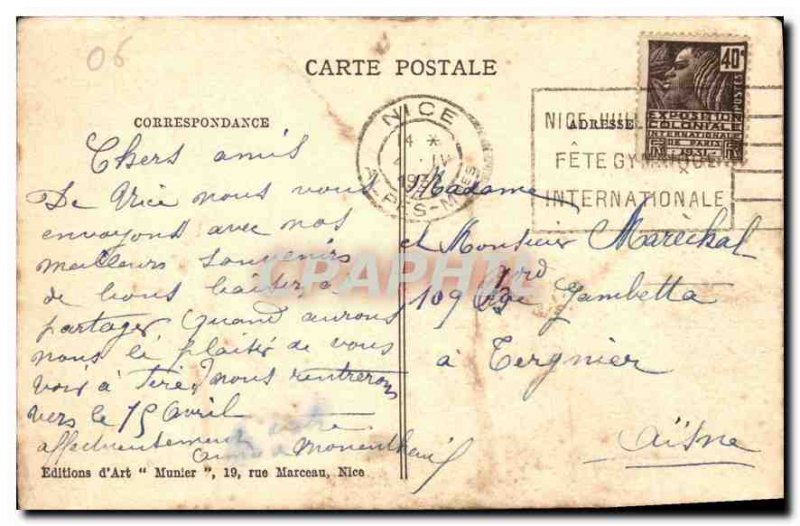 06
CARTE POSTALE
CORRESPONDANCE
ADRESSE
NICE
1932
ALPES-MMES
NICE
FÊTE GYMNIQUE
INTERNATIONALE
40c
POSTES
EXPOSITION
COLONIALE
INTERNATIONALE
DE PARIS
1931
Chers amis
De Nice nous vous
envoyons avec nos
meilleurs souvenirs
de bons baisers à
partager Quand aurons
nous le plaisir de vous
voir à ? nous rentrerons
vers le 15 Avril
affectueusement
Madame
et Monsieur Maréchal
109 Gambetta
à Tergnier
Aisne
CPAPHIL
Editions d'Art " Munier ", 19, rue Marceau, Nice